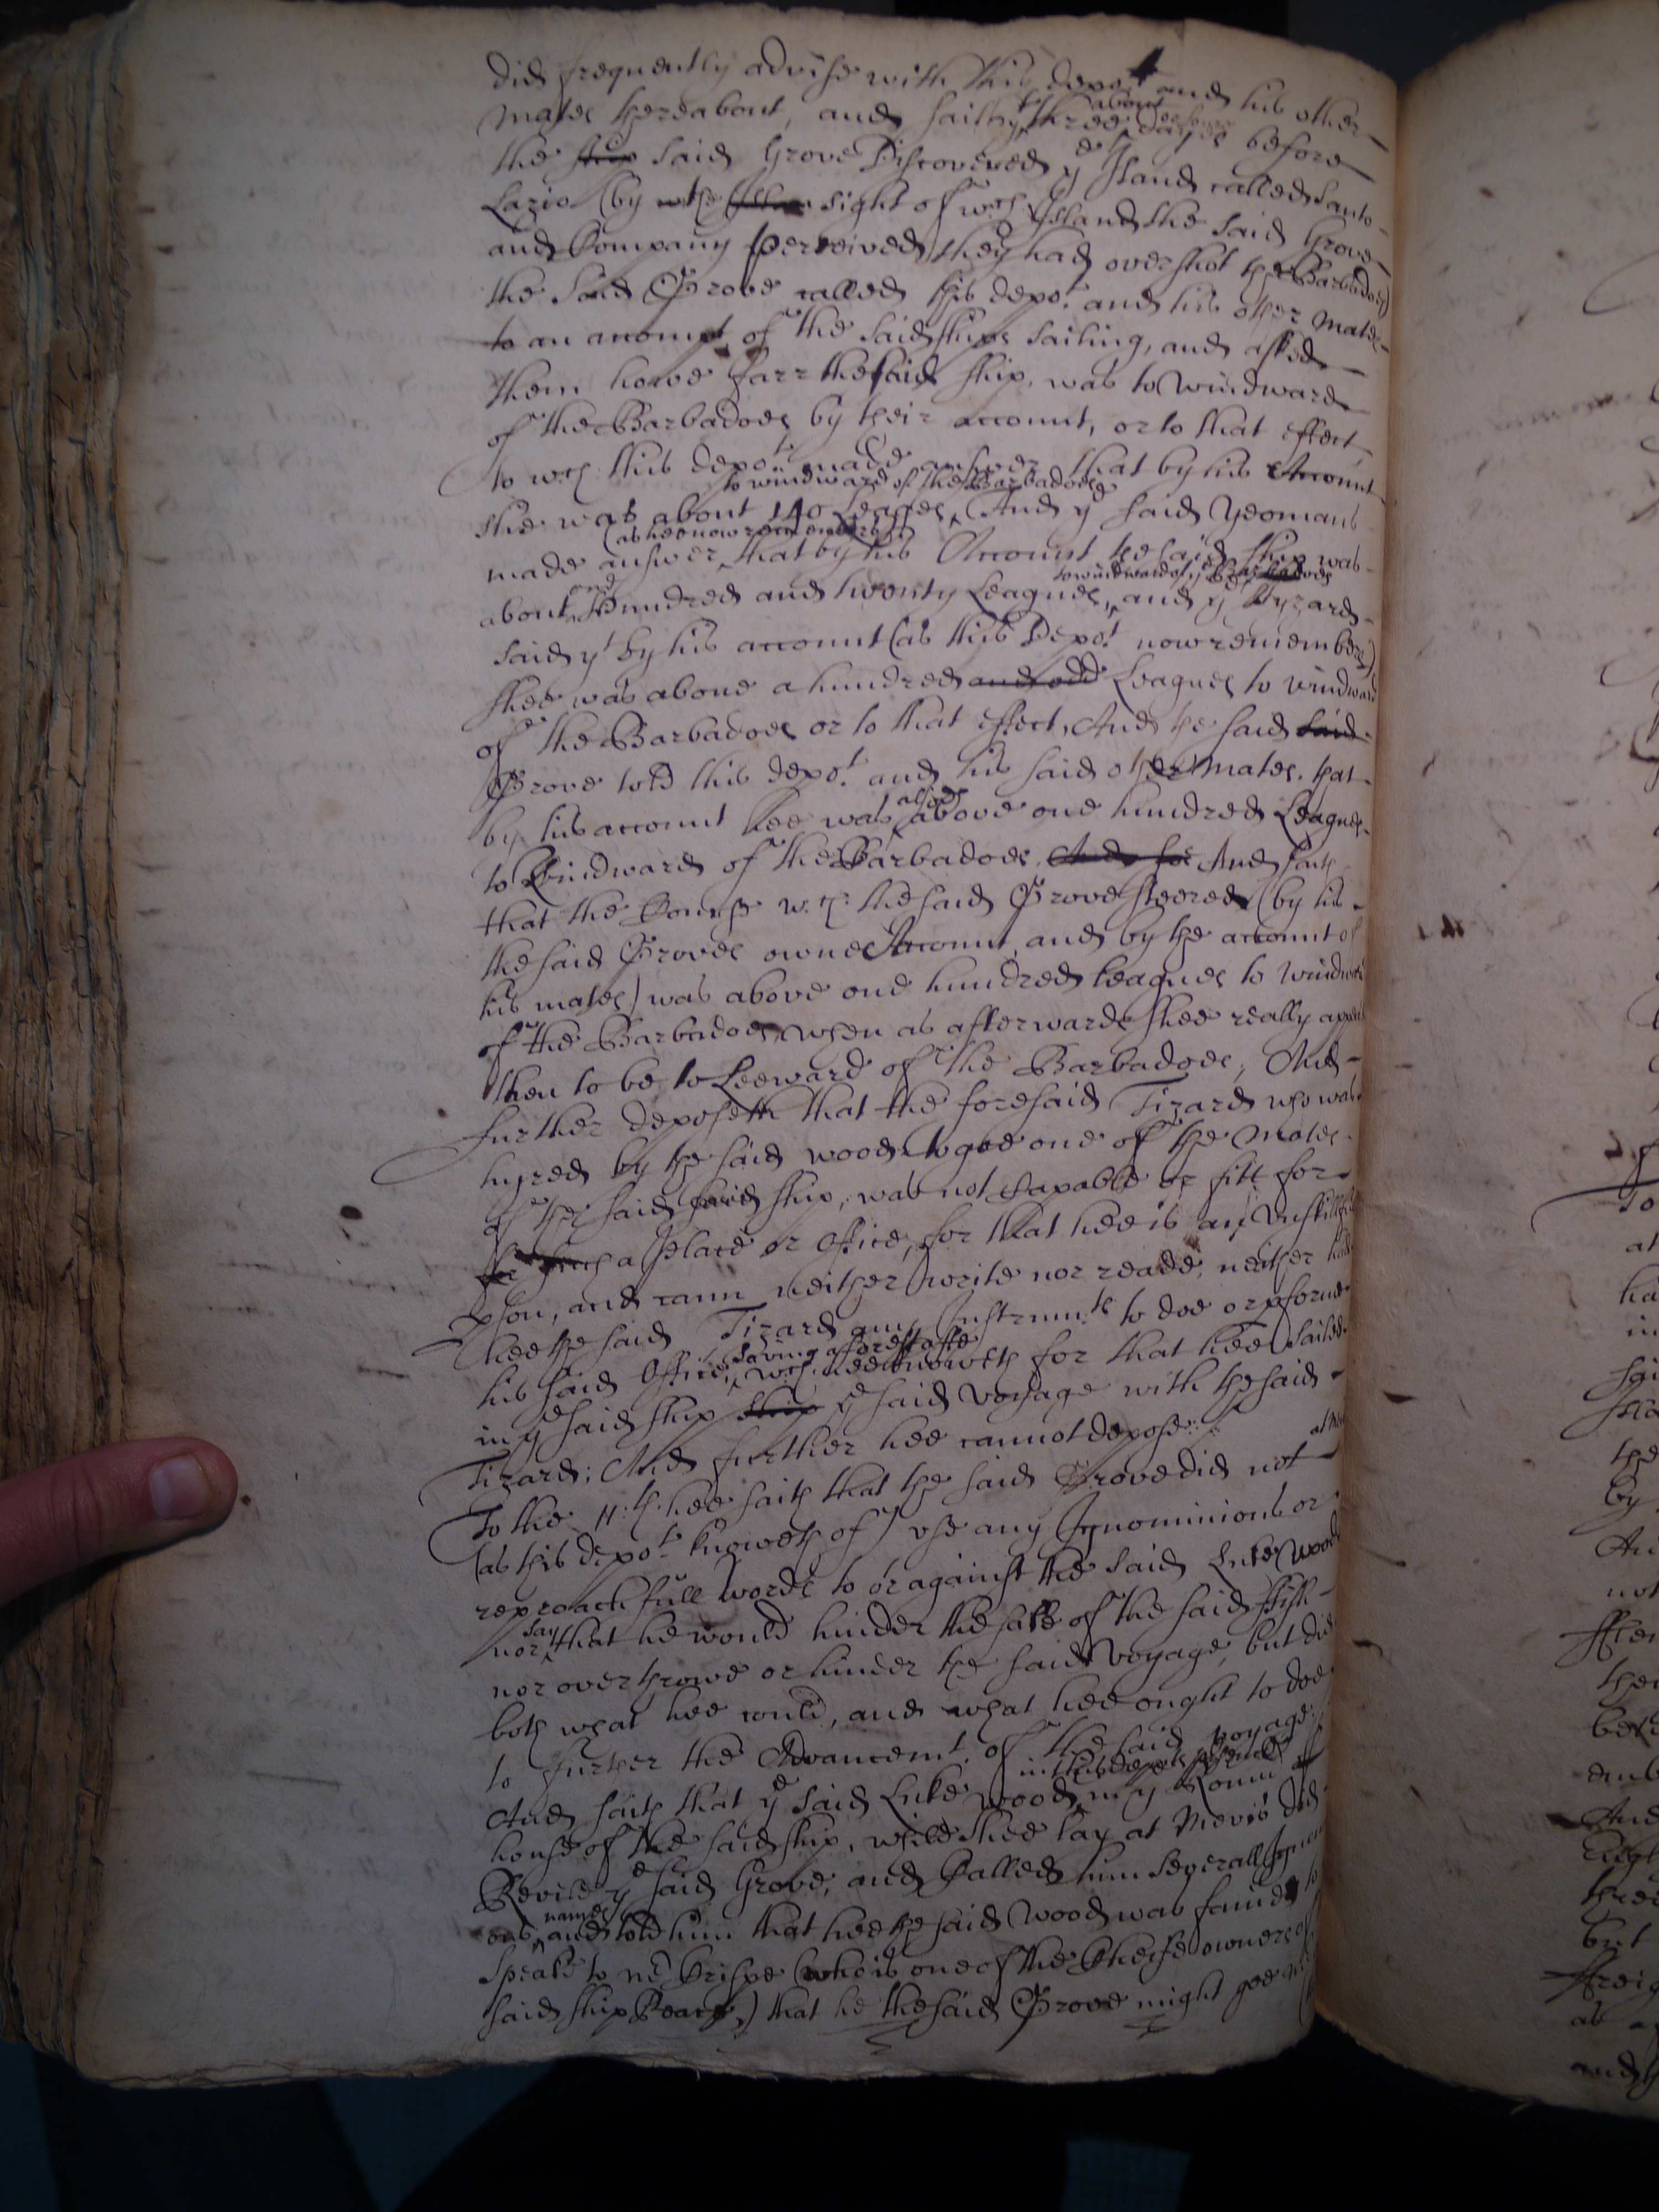 did frequently advise with this depo.t and his other
mates thereabout, and saith y.t about three or foure dayes before
the ship said Grove Discovered y.e Island called Santo
Lazia (by wthe sight of w.ch Island the said Grove
and Company perceived they had overshot the Barbadoes)
the said Grove called this depo.t and his other mates
to an accompt of the said ships sailing, and asked
them howe farr the said ship was to windward
of the Barbadoes by their account, or to that effect
To w.ch this depo.t made answer that by his Account
she was about 140 Leagues, to windward of the Barbadoes And y.e said Yeomans
made answer (as hee now remembers) that by his Account the said ship was
about one hundred and twenty Leagues, to windward of y.e Barbadoes and y.e Tyzard
said y.t by his account (as this Depo.t now remembers)
shee was above a hundred and odd Leagues to windward
of the Barbadoes or to that effect, And the said said
Grove told this depo.t and his said other mates, that
by his account hee was alsoe above one hundred Leagues
to Windward of the Barbadoes, And so And saith
that the Course w.ch the said Grove steered (by his
the said Groves owne Account, and by the account of
his mates) was above one hundred leagues to windward
of the Barbadoes, when as afterwards shee really
then to be to Leeward of the Barbadoes, And
further deposeth that the foresaid Tizard who was
hyred by the said wood to goe one of the Mates
of the said said ship, was not Capable or fitt for
for such a place or Office, for that hee is an unskillfull
pson, and cann neither write nor reade, neither had
hee the said Tizard any Instrum.ts to doe or pforme
his said Office, saving a forestaffe w.ch hee knoweth for that hee sailed
in y.e said ship ship y.e said voyage with the said
Tizard; And further hee cannot depose.
To the 11.th hee saith that the said Grove did not
(as this depo.t knoweth of) use any Ignominious or
reproachfull words to or against the said Luke Wood
nor say that he would hinder the sale of the said Fish
nor overthrowe or hinder the said voyage, but did
both what hee could, and what hee ought to doe
to further the Advancem.t of the said voyage.
And saith that y.e said Luke Wood, in this depo.ts presence in y.e Round
house of the said ship, while shee lay at Mevis did
Revile y.e said Grove, and Called him severall
ous names and told him that hee the said Wood was faine to
speake to m.r Crispe (who is one of the Cheife owners of
said ship Beare,) that he the said Grove might goe